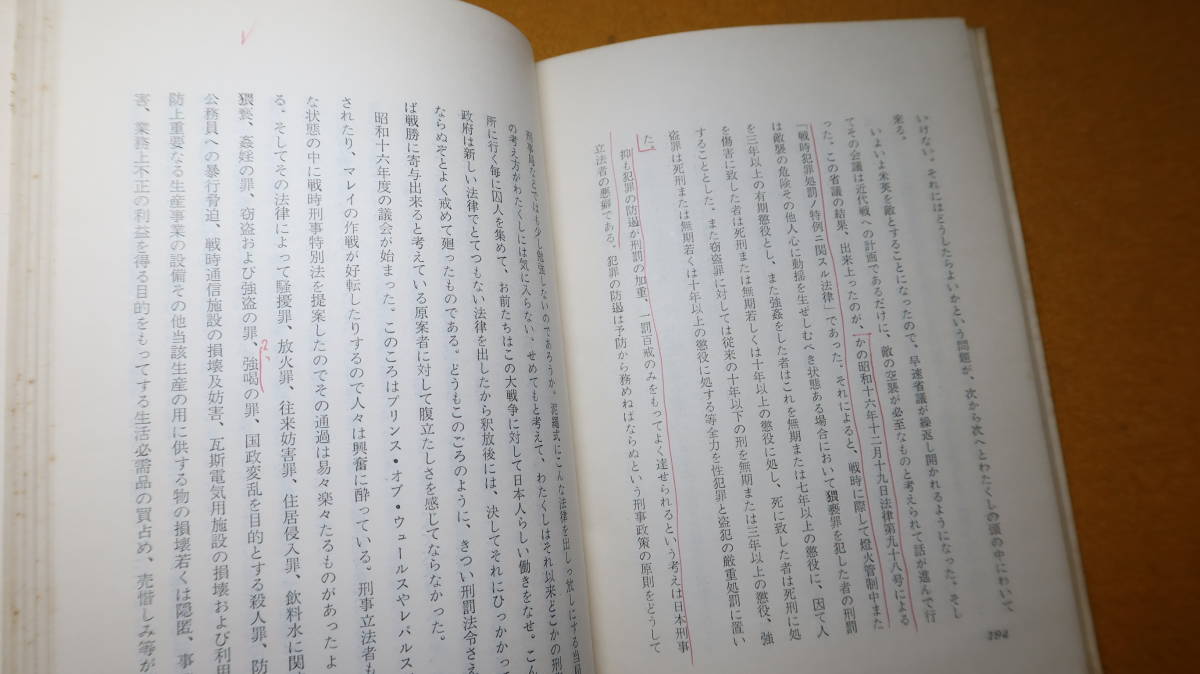 いけない。それにはどうしたらよいかという問題が、次から次へとわたくしの頭の中にわいて
来る。
いよいよ米英を敵とすることになったので、早速省議が繰返し開かれるようになった。そし
てその会議は近代戦への計画であるだけに、敵の空襲が必至なものと考えられて話が進んで行
った。この省議の結果、出来上ったのが、かの昭和十六年十二月十九日法律第九十八号による
「戦時犯罪処罰ノ特例ニ関スル法律」であった。それによると、戦時に際して燈火管制中また
は敵襲の危険その他人心に動揺を生ぜしむべき状態ある場合において猥褻罪を犯した者の刑罰
を三年以上の有期懲役とし、また強姦をした者はこれを無期または七年以上の懲役に、因て人
を傷害に致した者は死刑または無期若しくは十年以上の懲役に処し、死に致した者は死刑に処
することとした。また窃盗罪に対しては従来の十年以下の刑を無期または三年以上の懲役、強
盗罪は死刑または無期若くは十年以上の懲役に処する等全力を性犯罪と盗犯の厳重処罰に置い
た。
抑も犯罪の防遏が刑罰の加重、一罰百戒のみをもってよく達せられるという考えは日本刑事
立法者の悪癖である。犯罪の防遏は予防から務めねばならぬという刑事政策の原則をどうして
194
刑事局などではも少し勉強しないのであろうか。泥縄式にこんな法律を出しっ放しにする当局
の考え方がわたくしには気に入らない。せめてもと考えて、わたくしはそれ以来どこかの刑
所に行く毎に囚人を集めて、お前たちはこの大戦争に対して日本人らしい働きをなせ。こん
政府は新しい法律でとてつもない法律を出したから釈放後には、決してそれにひっかかって
ならぬぞとよく戒めて廻ったものである。どうもこのごろのように、きつい刑罰法令さえ
ば戦勝に寄与出来ると考えている原案者に対して腹立たしさを感じてならなかった。
昭和十六年度の議会が始まった。このころはプリンス・オブ・ウェールスやレパルス
されたり、マレイの作戦が好転したりするので人々は興奮に酔っている。刑事立法者も
な状態の中に戦時刑事特別法を提案したのでその通過は易々楽々たるものがあったよ
る。そしてその法律によって騒擾罪、放火罪、往来妨害罪、住居侵入罪、飲料水に関
猥褻、姦淫の罪、窃盗および強盗の罪、強喝の罪、国政変乱を目的とする殺人罪、防
公務員への暴行脅迫、戦時通信施設の損壊及妨害、瓦斯電気用施設の損壊および利用
防上重要なる生産事業の設備その他当該生産の用に供する物の損壊若くは隠匿、事
害、業務上不正の利益を得る目的をもってする生活必需品の買占め、売惜しみ等が